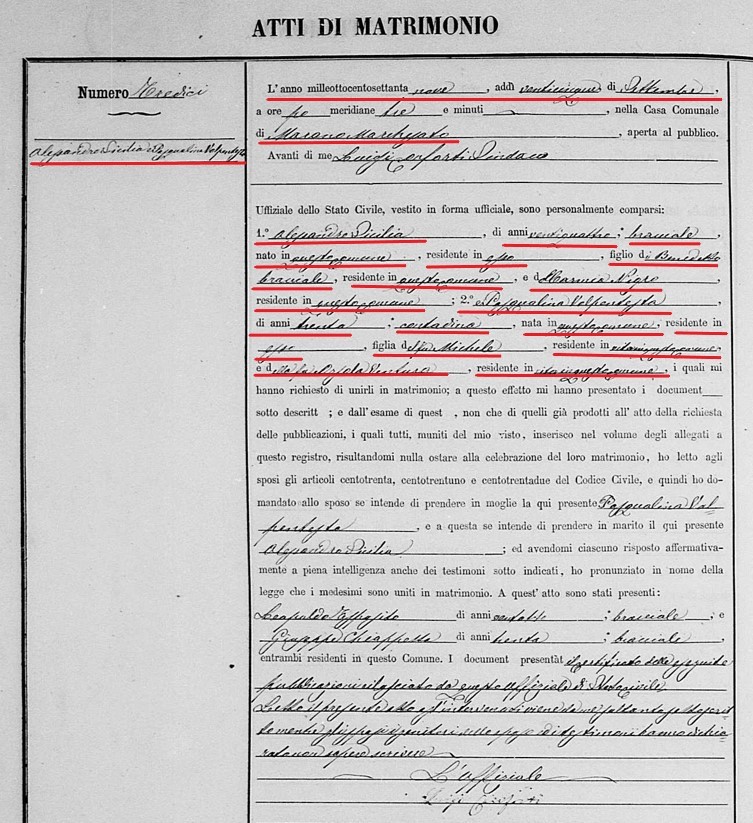 ATTI DI MATRIMONIO
Numero Tredici
Alessandro Sicilia e Pasqualina Valpentesta
L'anno milleottocentosettanta nove, addì venticinque di Settembre,
a ore po meridiane tre e minuti, nella Casa Comunale
di Marano Marchesato, aperta al pubblico.
Avanti di me Luigi Conforti Sindaco
Uffiziale dello Stato Civile, vestito in forma ufficiale, sono personalmente comparsi:
1.° Alessandro Sicilia, di anni ventiquattro; bracciale,
nato in questo comune, residente in esso, figlio di Benedetto
bracciale, residente in questo comune, e di Carmia Nigro
residente in questo comune; 2.° Pasqualina Valpentesta,
di anni trenta; contadina, nata in questo comune, residente in
esso, figlia del fu Michele, residente in vita in questo comune
e della fu Ventura, residente in vita in questo comune, i quali mi
hanno richiesto di unirli in matrimonio; a questo effetto mi hanno presentato i document
sotto descritt ; e dall'esame di quest , non che di quelli già prodotti all'atto della richiesta
delle pubblicazioni, i quali tutti, muniti del mio visto, inserisco nel volume degli allegati a
questo registro, risultandomi nulla ostare alla celebrazione del loro matrimonio, ho letto agli
sposi gli articoli centotrenta, centotrentuno e centotrentadue del Codice Civile, e quindi ho do-
mandato allo sposo se intende di prendere in moglie la qui presente Pasqualina Val-
pentesta, e a questa se intende di prendere in marito il qui presente
Alessandro Sicilia; ed avendomi ciascuno risposto affermativa-
mente a piena intelligenza anche dei testimoni sotto indicati, ho pronunziato in nome della
legge che i medesimi sono uniti in matrimonio. A quest'atto sono stati presenti:
Leopoldo Esposito di anni; bracciale; e
Giuseppe Chiappetta di anni trenta; bracciale,
entrambi residenti in questo Comune. I document presentàt il certificato delle eseguite
pubblicazioni rilasciato da questo uffiziale di Stato civile
Letto il presente atto agl'intervenuti viene da me soltanto sottoscrit
to mentre gli sposi i genitori dello sposo ed i testimoni hanno dichia
rato non sapere scrivere
L'uffiziale
Luigi Conforti